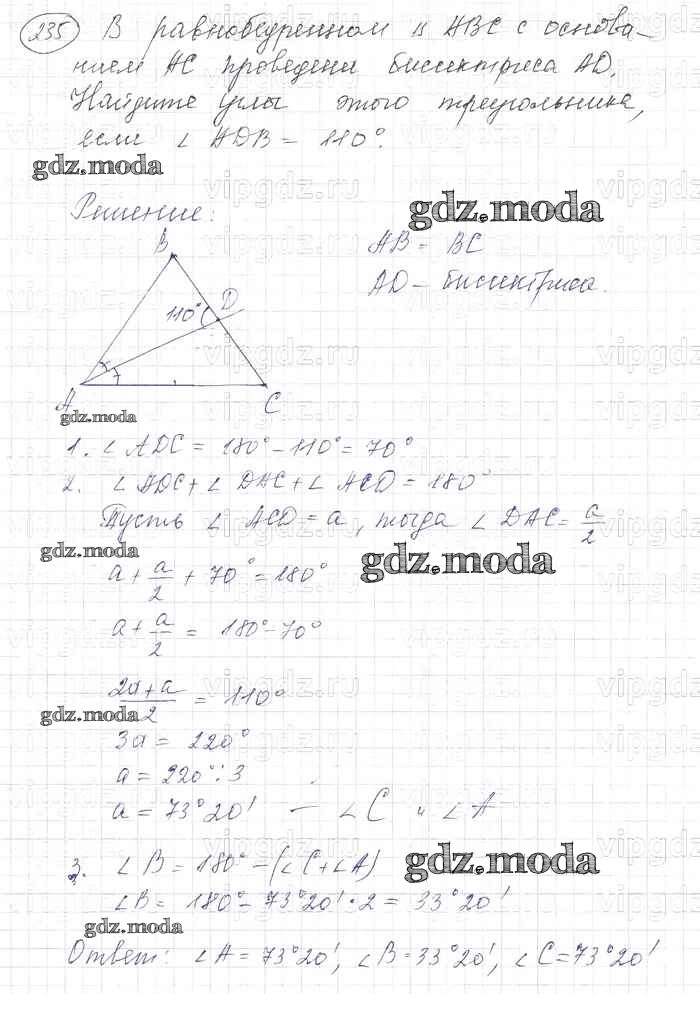 235 В равнобедренном Δ ABC с основа-
нием AC проведена биссектриса AD.
Найдите углы этого треугольника,
если ∠ ADB = 110°.
gdz.moda
Решение:
gdz.moda
B
AB = BC
AD - биссектриса.
110°
D
A
C
gdz.moda
1. ∠ ADC = 180° - 110° = 70°
2. ∠ ADC + ∠ DAC + ∠ ACD = 180°
Пусть ∠ ACD = a, тогда ∠ DAC = a/2
gdz.moda
gdz.moda
a + a/2 + 70° = 180°
a + a/2 = 180° - 70°
(2a + a)/2 = 110°
gdz.moda
3a = 220°
a = 220° : 3
a = 73°20' - ∠ C и ∠ A
3. ∠ B = 180° - (∠ C + ∠ A)
gdz.moda
∠ B = 180° - 73°20' · 2 = 33°20'
gdz.moda
Ответ: ∠ A = 73°20', ∠ B = 33°20', ∠ C = 73°20'